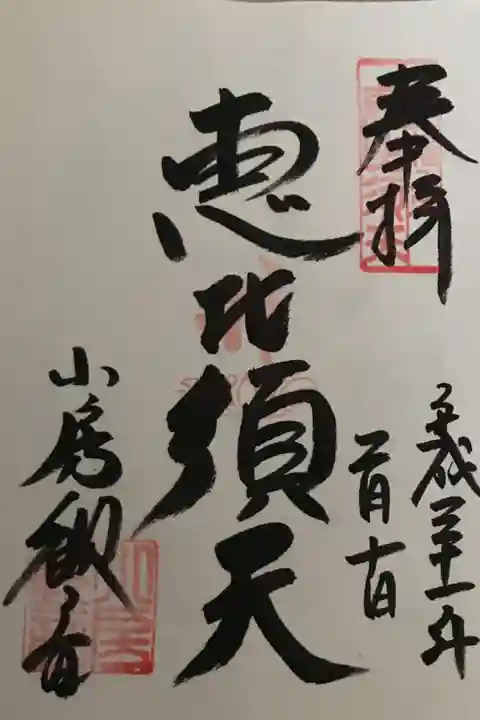 奉拝
平成三十一年
一月十日
恵比須天
小房観音